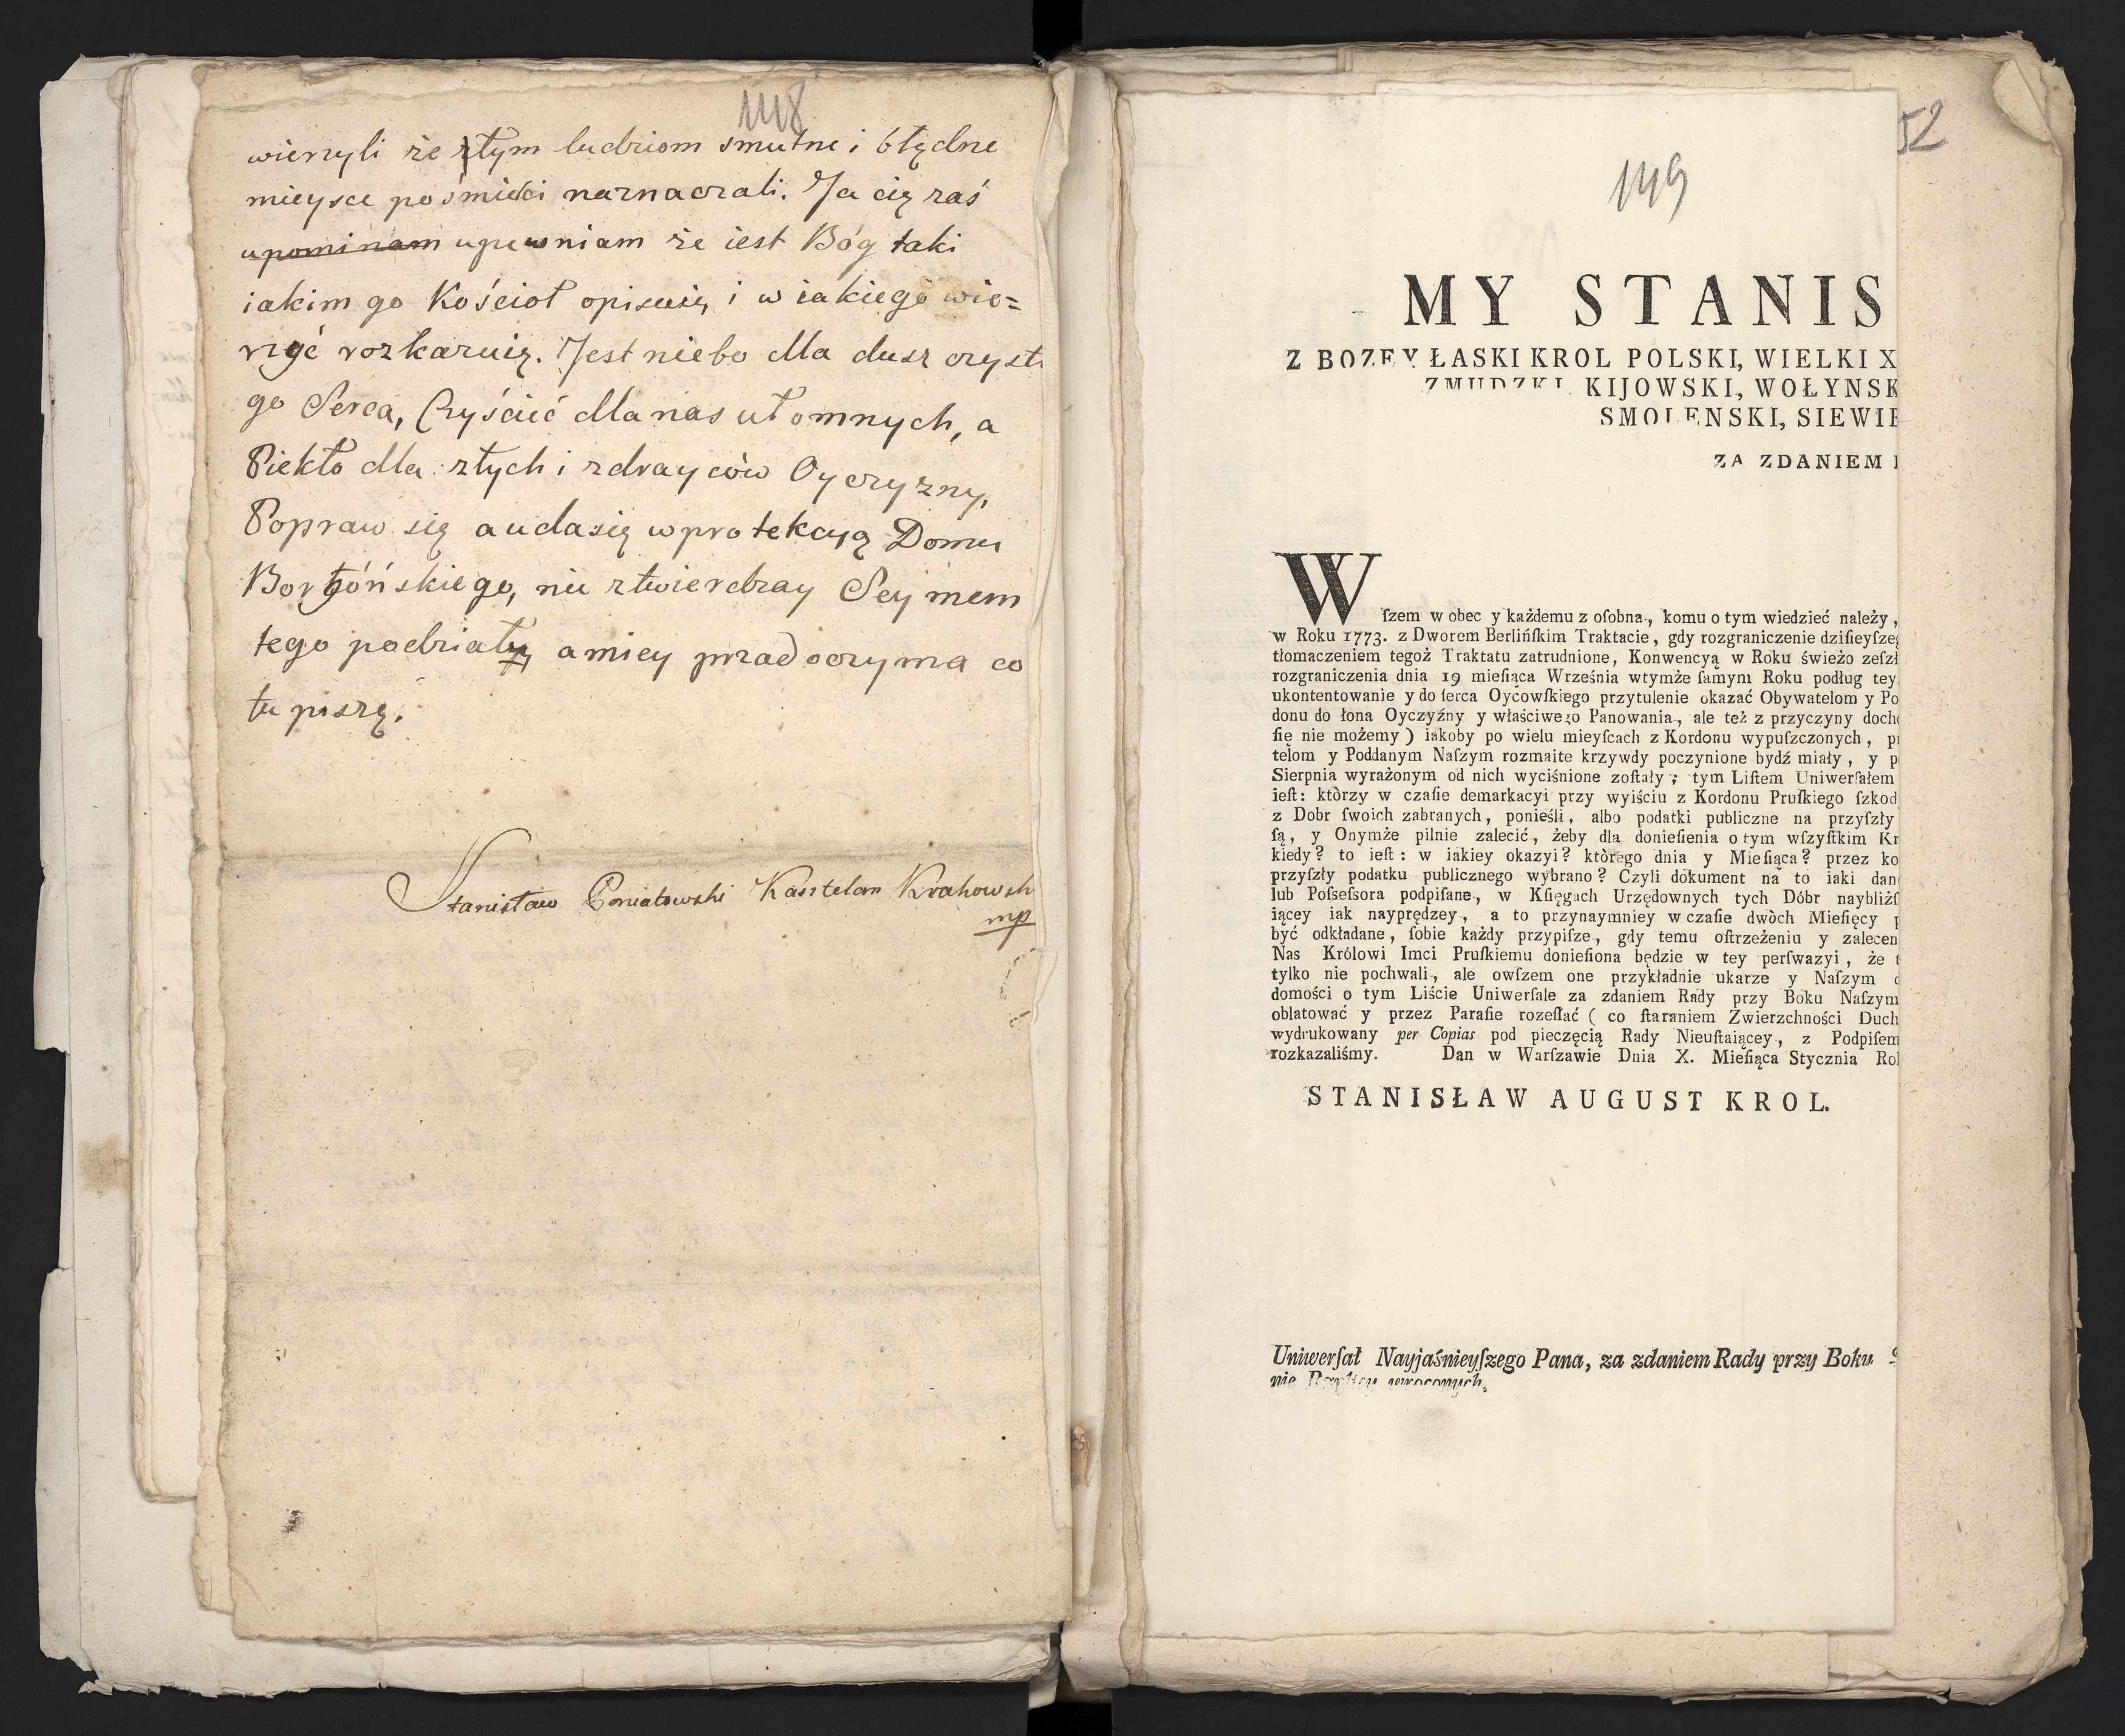 148
wierzyli że złym ludziom smutne i błędne
mieysce po śmierci naznaczali. Ja cię zaś
upominam upewniam że iest Bóg taki
iakim go Kościoł opisuię i w iakiego wie=
rzyć rozkazuię. Jest niebo dla dusz czyste
go Serca, Czyściec dla nas ułomnych, a
Piekło dla złych i zdraycòw Oyczyzny,
Popraw się a uda się w protekcyą Domu
Borbóńskiego, nie ztwierdzay Seymem
tego podziału a miey przed oczyma co
tu piszę.
Stanisław Poniatowski Kasztelan Krakowsk
mp
52
149
MY STANIS
Z BOZEY ŁASKI KROL POLSKI, WIELKI X
ZMUDZKI, KIJOWSKI, WOŁYNSK
SMOLENSKI, SIEWIE
ZA ZDANIEM
Wſzem w obec y każdemu z oſobna, komu o tym wiedzieć należy,
w Roku 1773. z Dworem Berlińſkim Traktacie, gdy rozgraniczenie dziſieyſzeg
tłomaczeniem tegoż Traktatu zatrudnione, Konwencyą w Roku świeżo zeſzł
rozgraniczenia dnia 19 mieſiąca Września wtymże ſamym Roku podług tey
ukontentowanie y do ſerca Oycowſkiego przytulenie okazać Obywatelom y Po
donu do łona Oyczyźny y właściwego Panowania, ale też z przyczyny doch
ſię nie możemy) iakoby po wielu mieyſcach z Kordonu wypuſzczonych, pr
telom y Poddanym Naſzym rozmaite krzywdy poczynione bydź miały, y p
Sierpnia wyrażonym od nich wyciśnione zoſtały; tym Liſtem Uniwerſałem
ieſt: ktòrzy w czaſie demarkacyi przy wyiściu z Kordonu Pruſkiego ſzkod
z Dobr ſwoich zabranych, ponieśli, albo podatki publiczne na przyſzły
ſą, y Onymże pilnie zalecić, żeby dla donieſienia o tym wſzyſtkim Kr
kiedy? to ieſt: w iakiey okazyi? ktòrego dnia y Mieſiąca? przez ko
przyſzły podatku publicznego wybrano? Czyli dokument na to iaki dan
lub Poſseſsora podpiſane, w Kſięgach Urzędownych tych Dóbr naybliżſ
iącey iak nayprędzey, a to przynaymniey w czaſie dwòch Mieſięcy p
być odkładane, ſobie każdy przypiſze, gdy temu oſtrzeżeniu y zalecen
Nas Królowi Imci Pruſkiemu donieſiona będzie w tey perſwazyi, że t
tylko nie pochwali, ale owſzem one przykładnie ukarze y Naſzym
domości o tym Liście Uniwerſale za zdaniem Rady przy Boku Naſzym
oblatować y przez Paraſie rozeſłać ( co ſtaraniem Zwierzchności Duch
wydrukowany per Copias pod pieczęcią Rady Nieuſtaiącey, z Podpiſem
rozkazaliśmy. Dan w Warſzawie Dnia X. Mieſiąca Stycznia Rok
STANISŁAW AUGUST KROL.
Uniwerſał Nayjaśnieyſzego Pana, za zdaniem Rady przy Boku
nie wroconych.